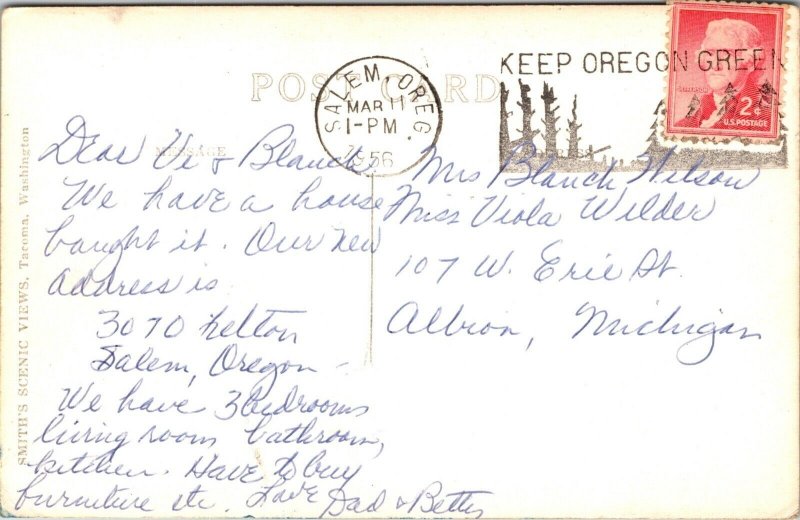 POST CARD
SALEM, OREG.
MAR 11
1-PM
1956
KEEP OREGON GREEN
JEFFERSON
2¢
U.S. POSTAGE
MESSAGE
Dear Vi & Blanch,
We have a house
bought it. Our new
address is
3070 Felton
Salem, Oregon -
We have 3 bedrooms
living room bathroom,
kitchen. Have to buy
furniture etc. Love Dad & Betty
Mrs Blanch Wilson
Miss Viola Wilder
107 W. Erie St.
Albion, Michigan
SMITH'S SCENIC VIEWS, Tacoma, Washington